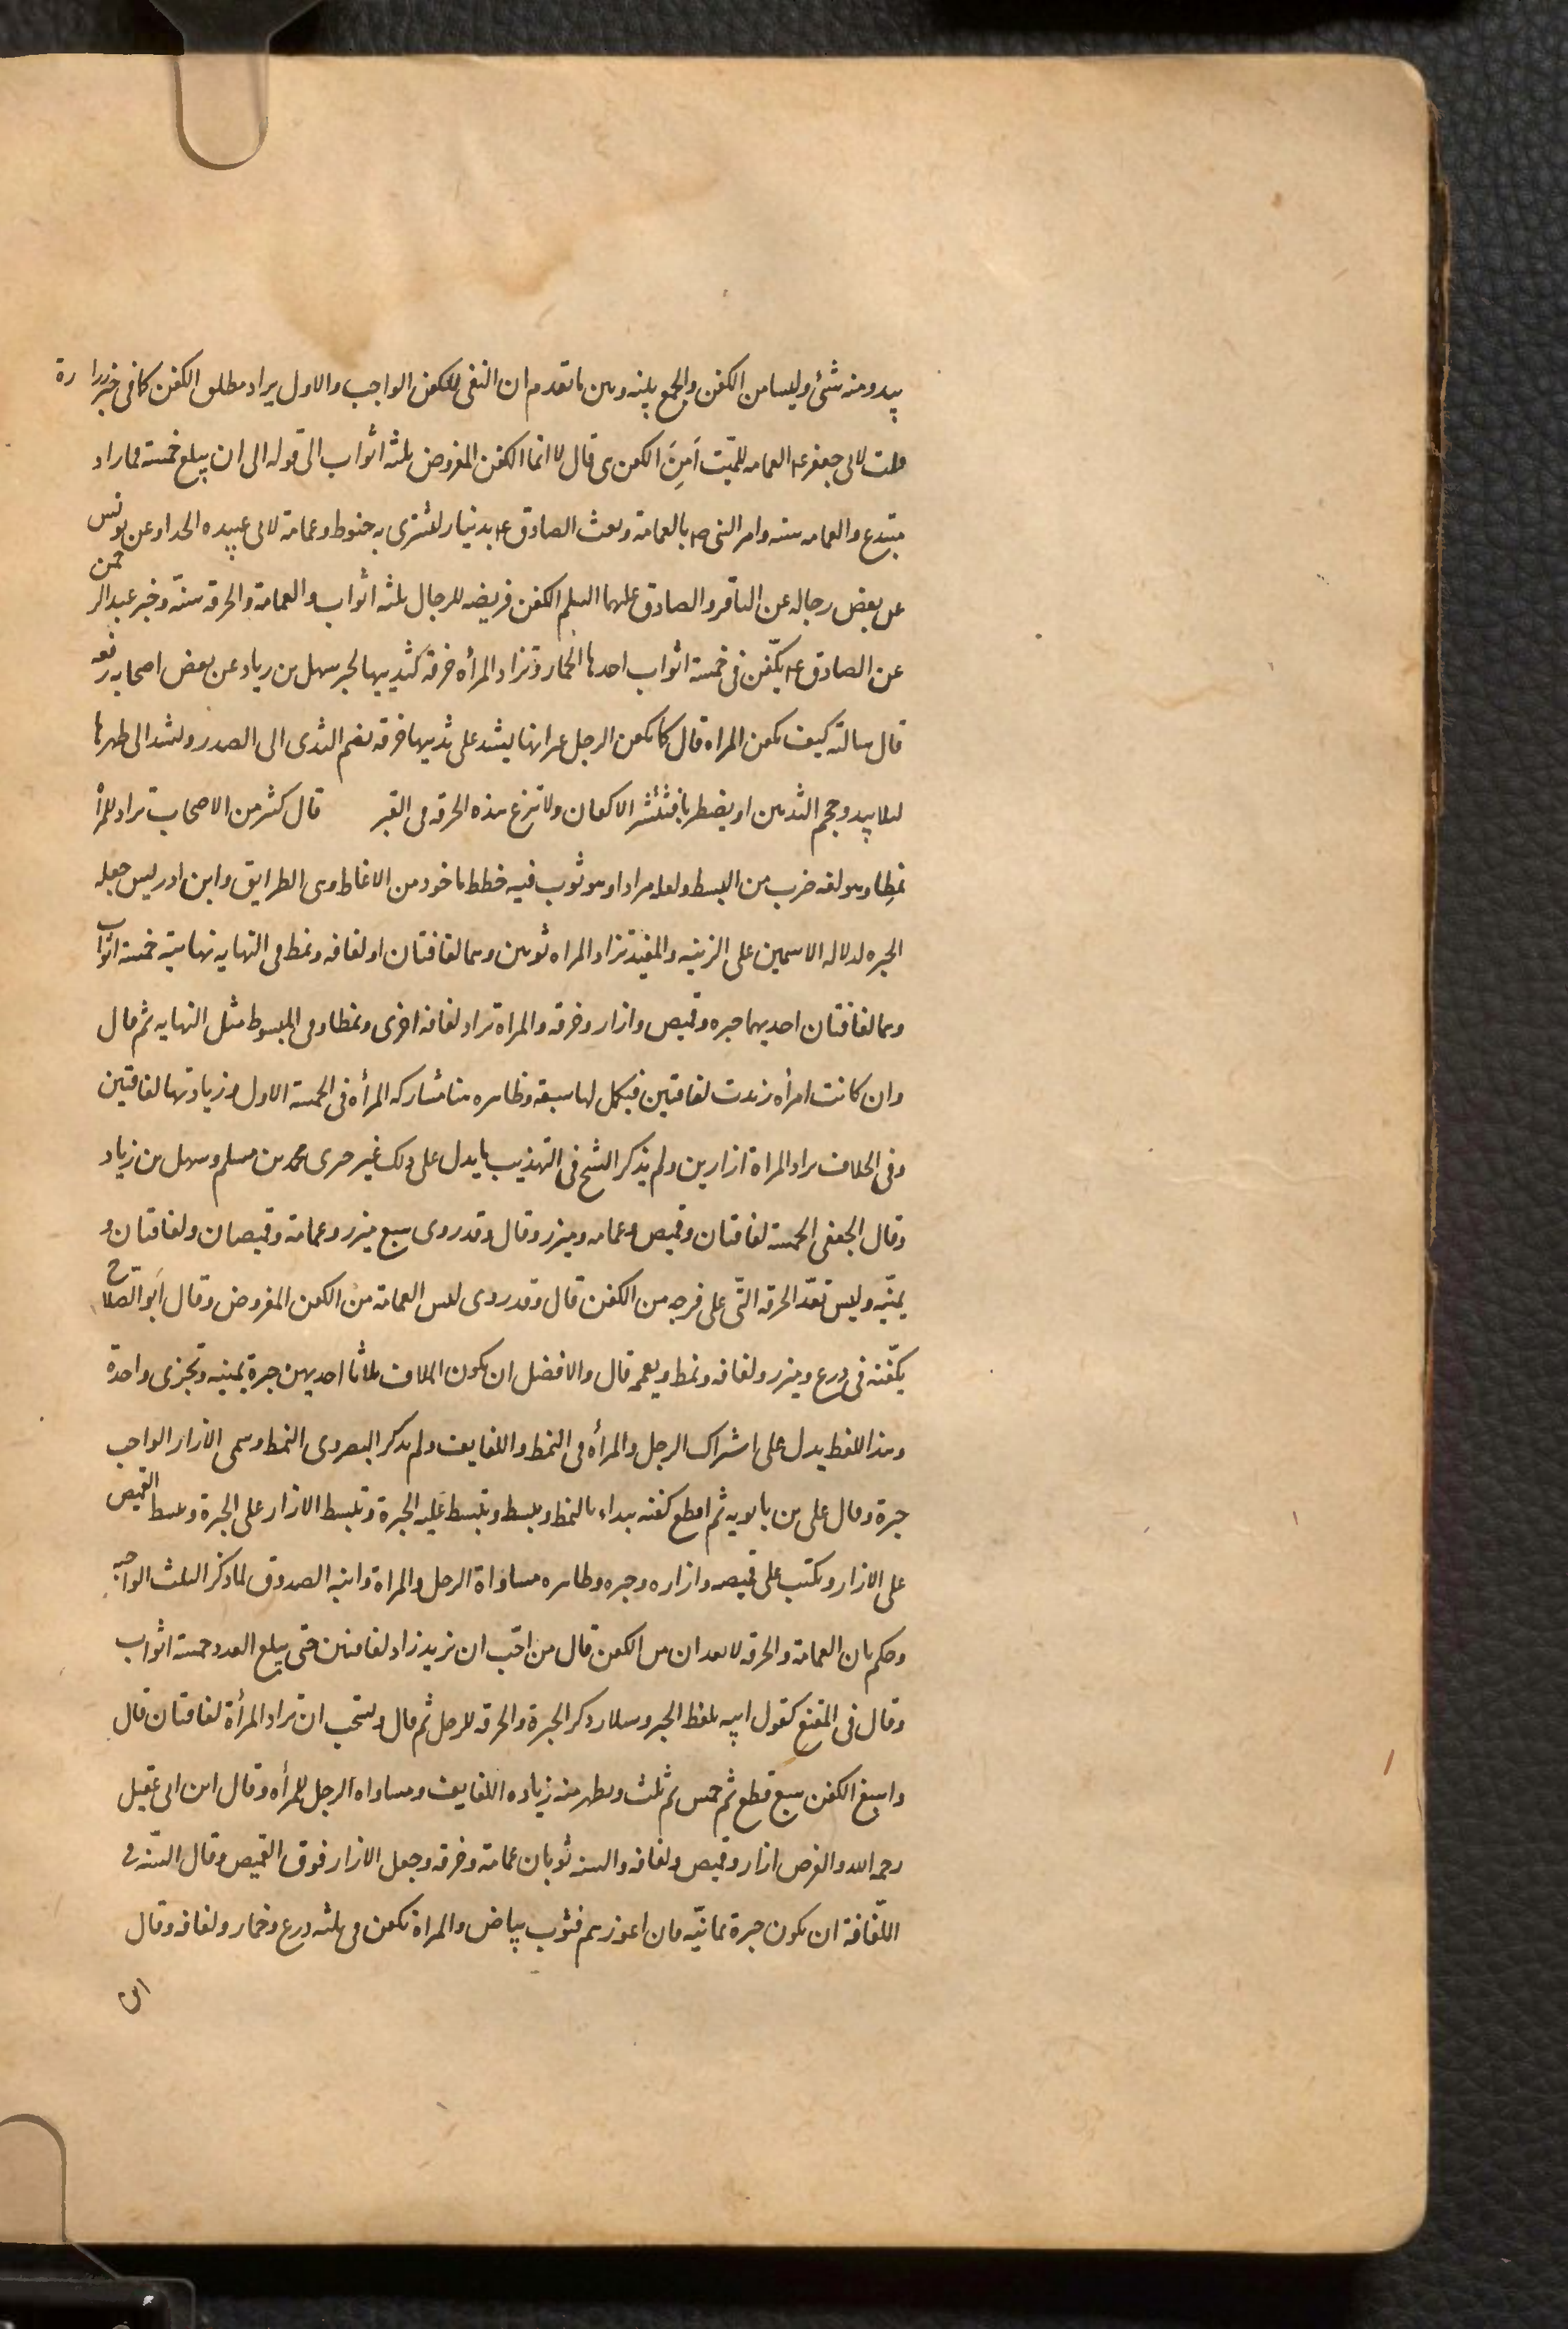 يبدو منه شئ وليسا من الكفن والجمع بينه وبين ما تقدم ان النفى للكفن الواجب والاول يراد مطلق الكفن كما فى خبر زرارة
قلت لابى جعفر ع العمامه للميّت اَمِنَ الكفن هى قال لا انما الكفن المفروض ثلثه اثواب الى قوله الى ان يبلغ خمسة فما زاد
مبتدع والعمامه سنه وامر النبى ص بالعمامة وبعث الصادق ع بدينار ليشترى به حنوط وعمامة لابى عبيده الحذاء وعن يونس
عن بعض رجاله عن الباقر والصادق عليهما السلم الكفن فريضه للرجال ثلثه اثواب والعمامة والخرقه سنّه وخبر عبد الرحمن
عن الصادق ع يكّفن فى خمسة اثواب احدها الخمار وتزاد المرأه خرقة لثدييها لخبر سهل بن زياد عن بعض اصحابه رفعه
قال سالته كيف تكفن المراه قال كما يكفن الرجل غير انها يشد على ثدييها خرقه تضم الثدى الى الصدر وتشد الى ظهرها
لئلا يبدو حجم الثديين او يضطربا فتنتشر الاكفان ولا تنزع هذه الخرقه فى القبر قال كثر من الاصحاب تزاد للمرأ
نمطِا وهو لغه ضرب من البسط ولعله مراد او هو ثوب فيه خطط ماخوذ من الانماط وهى الطرايق وابن ادريس جعله
الحبره لدلاله الاسمين على الزينه والمفيد تزاد المراه ثوبين وهما لفافتان او لفافه ونمط فى النهايه نهايته خمسة اثواب
وهما لفافتان احديهما حبره وقميص وازار وخرقه والمراة تزاد لفافه اخرى ونمطا وفى المبسوط مثل النهايه ثم قال
وان كانت امرأه زيدت لفافتين فيكمل لها سبعة وظاهره هنا مشاركه المرأه فى الخمسة الاول وزيادتها لفافتين
وفى الخلاف تزاد المراة ازارين ولم يذكر الشيخ فى التهذيب ما يدل على ذلك غير خبرى محمد بن مسلم وسهل بن زياد
وقال الجعفى الخمسة لفافتان وقميص وعمامه وميزر وقال وقد روى سبع ميزر وعمامة وقميصان ولفافتان و
يمنيّه وليس تعدّ الخرقه الّتى على فرجه من الكفن قال وقد روى ليس العمامة من الكفن المفروض وقال اَبو الصلاح
يكّفنه فى درع وميزر ولفافه ونمط ويعممه قال والافضل ان يكون الملاف ثلاثا احديهن حبرة يمنيه وتجزى واحدة
وهذا اللفظ يدل على اشتراك الرجل والمرأه فى النمط واللفايف ولم يذكر البصروى النمط وسمى الازار الواجب
حبرة وقال على بن بابويه ثم اقطع كفنه تبداء بالنمط وتبسطه وتبسط عليه الحبرة وتبسط الازار على الحبرة وتبسط القميص
على الازار وتكتب على قميصه وازاره وحبره وظاهره مساواة الرجل والمراة وابنه الصدوق لما ذكر الثلث الواجبه
وحكم بان العمامة والخرقه لا تعدان من الكفن قال من احّب ان يزيد زاد لفافتين حتى يبلغ العدد خمسة اثواب
وقال فى المقنع كقول ابيه بلفظ الخبر وسلار ذكر الحبرة والخرقه للرجل ثم قال ويستحب ان تزاد المرأة لفافتان قال
واسبغ الكفن سبع قطع ثم خمس ثم ثلث ويظهر منه زياده اللفايف ومساواه الرجل للمرأه وقال ابن ابى عقيل
رحمه الله والفرض ازار وقميص ولفافه والسنه ثوبان عمامة وخرقه وجعل الازار فوق القميص وقال السّنه فى
اللّفافة ان يكون حبرة يمانيّه فان اعوزهم فثوب بياض والمراة تكفن فى ثلثه درع وخمار ولفافه وقال
ابن